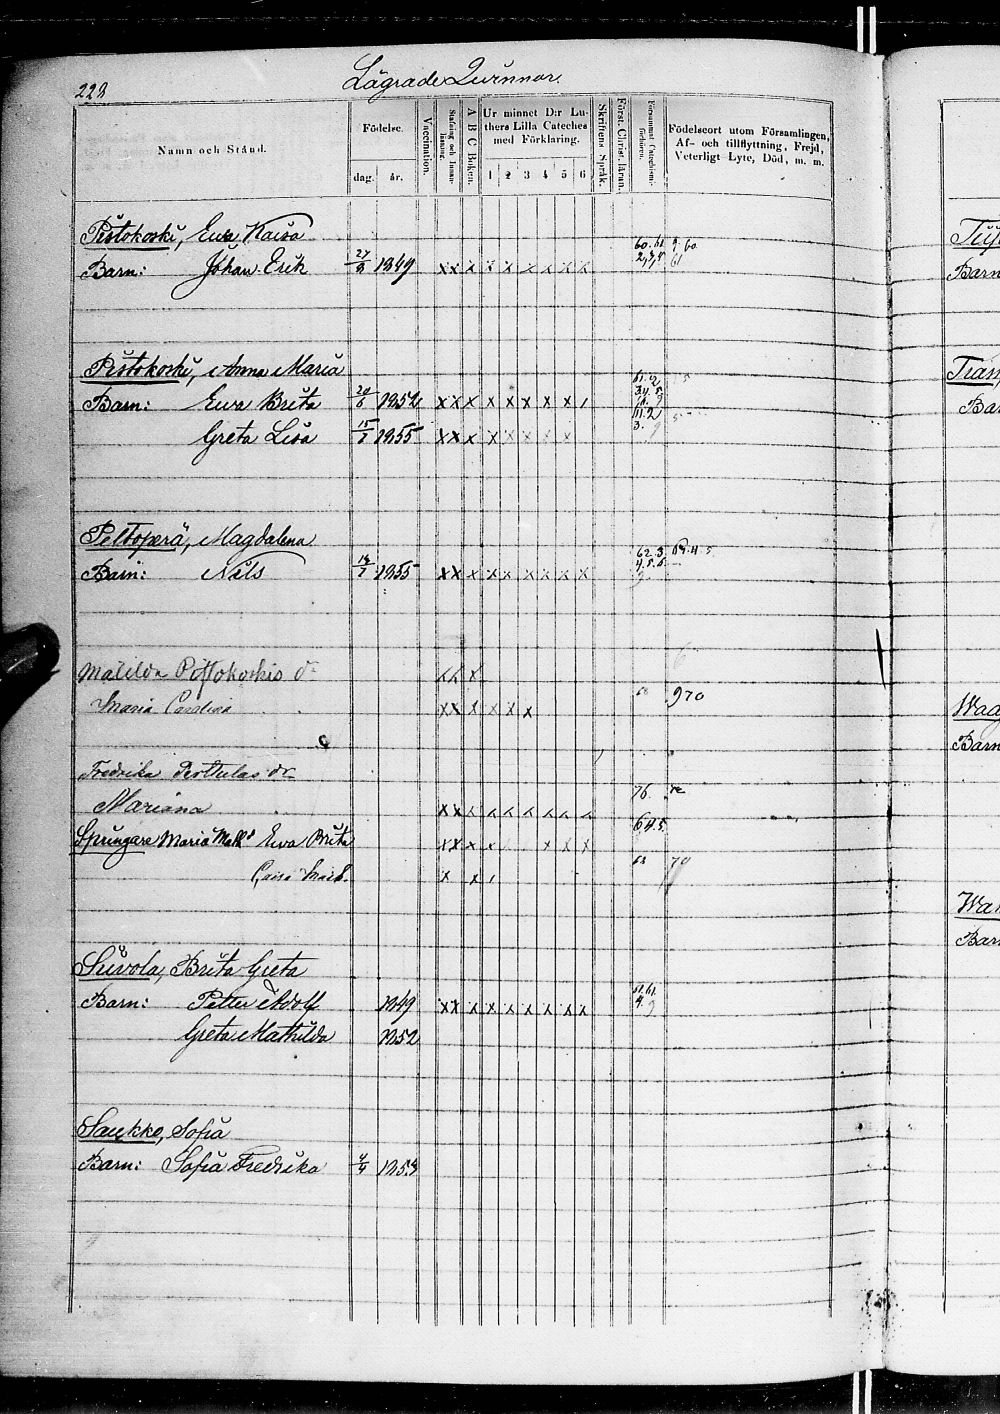 228
Lägrade Quinnor.
Namn och Stånd.
Födelse.
dag.
år.
Vaccination.
Stafning och Innanläsning.
A B C Boken.
Ur minnet D:r Luthers Lilla Cateches med Förklaring.
1 2 3 4 5 6
Skriftens Språk.
Först. Christ. läran.
Församnat Catechismiförhören.
Födelseort utom Församlingen, Af- och tillflyttning, Frejd, Veterligt Lyte, Död, m. m.
Pistokoski, Ewa Kaisa
60.61. 9. 60
Barn: Johan Erik 27/3 1849 xx x x x x x x x 61
Pistokoski, Anna Maria
Barn: Ewa Brita 20/6 1852 xx x x x x x x /
Greta Lisa 15/7 1855 xx x x x x x x 3. 9
Peltoperä, Magdalena
62.3. 4.5
Barn: Nils 1855 xx x x x x x x x 4.5.6.
Matilda Pistokoskis dr xx x
Maria Carolina xx x x x x 68 970
Fredrika Perttulas dr
Mariana xx x x x x x x x 76.
Springare Maria Matts Ewa Brita xx x x x x x 64.5.
Caisa Mari. x x / 68 70
Siivola, Brita Greta
Barn: Petter Adolf 1849 xx x x x x x x x 61. 4. 9
Greta Mathilda 1852
Saukko, Sofia
Barn: Sofia Fredrika 4/9 1853
Barn
Barn
Barn